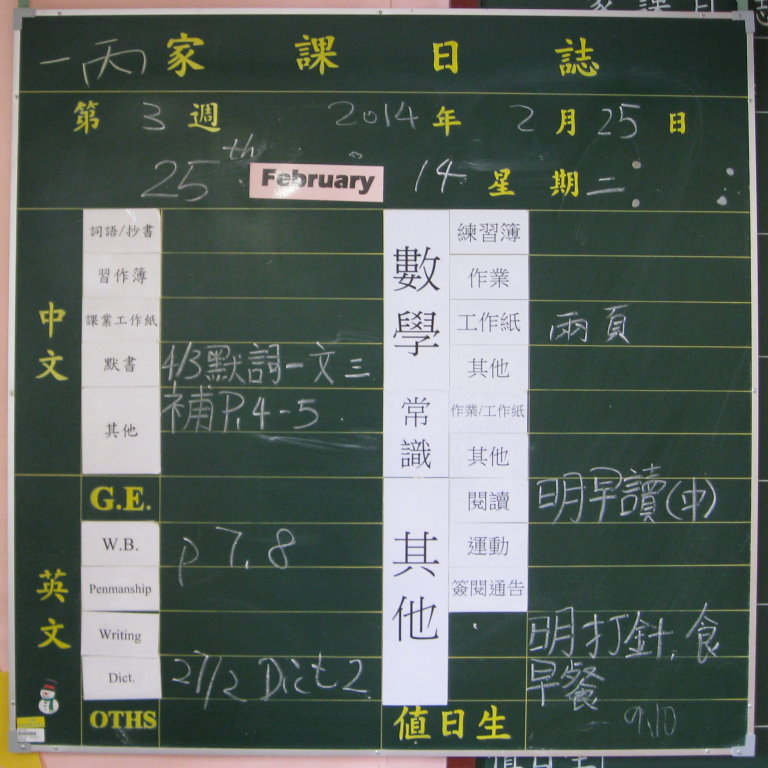 一丙 家課日誌
第 3 週 2014 年 2 月 25 日
25th February 14 星期二
中文
詞語/抄書
習作簿
課業工作紙
默書 4/3默詞一文三
其他 補P.4-5
英文
G.E.
W.B. p 7, 8
Penmanship
Writing
Dict. 27/2 Dict 2
OTHS
數學
練習簿
作業
工作紙 兩頁
其他
常識
作業/工作紙
其他
其他
閱讀 明早讀(中)
運動
簽閱通告
明打針,食
早餐
值日生 9,10